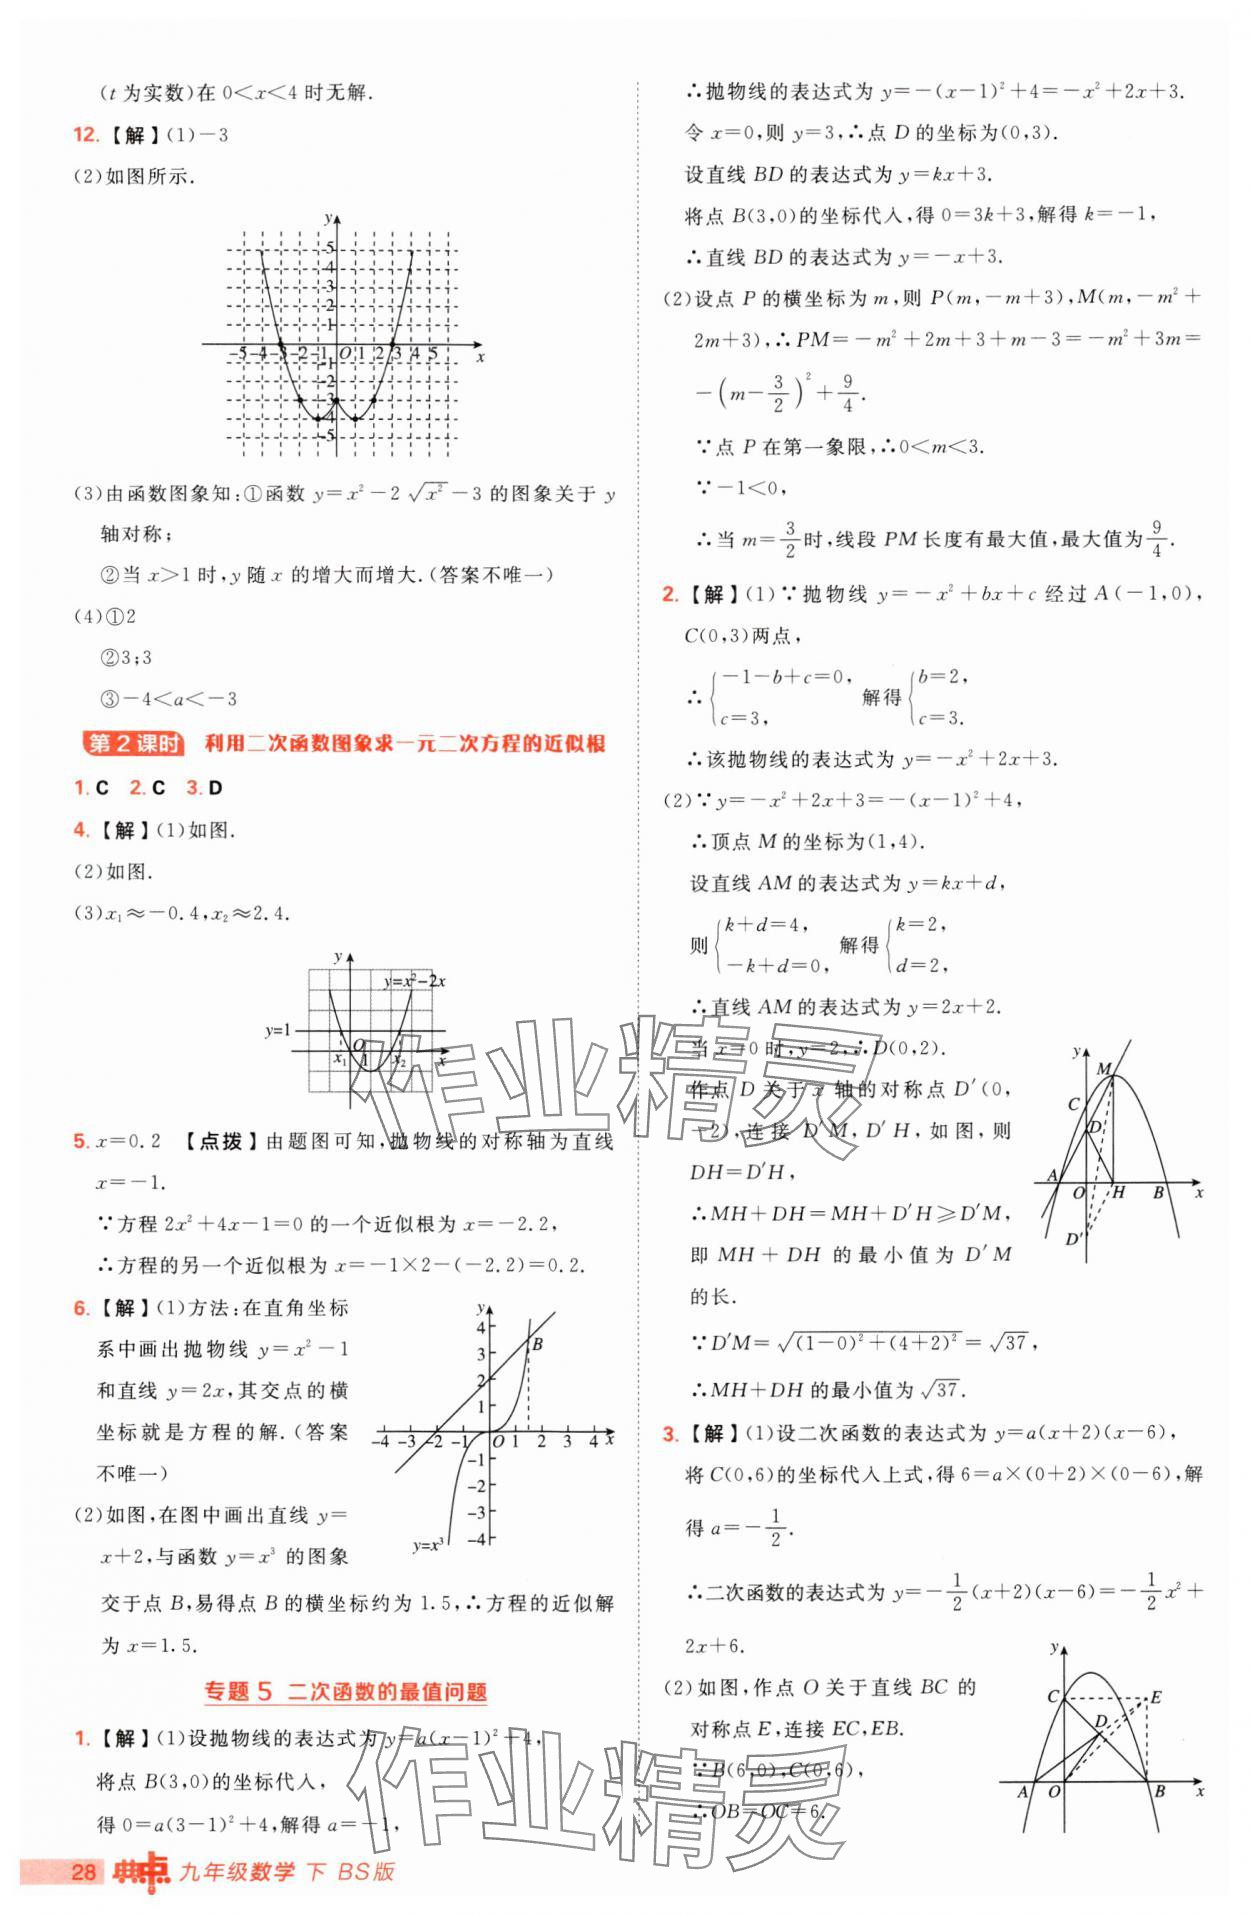 (t为实数)在0<x<4时无解.
12.【解】(1)-3
(2)如图所示.
y
5
4
3
2
1
-5-4-3-2-1 O 1 2 3 4 5 x
-1
-2
-3
-4
-5
(3)由函数图象知:①函数 y=x²-2√x²-3 的图象关于 y
轴对称;
②当 x>1 时,y 随 x 的增大而增大.(答案不唯一)
(4)①2
②3;3
③-4<a<-3
第2课时 利用二次函数图象求一元二次方程的近似根
1. C 2. C 3. D
4.【解】(1)如图.
(2)如图.
(3)x₁≈-0.4,x₂≈2.4.
y
y=x²-2x
y=1
x₁ O 1 x₂ x
5. x=0.2 【点拨】由题图可知,抛物线的对称轴为直线
x=-1.
∵方程 2x²+4x-1=0 的一个近似根为 x=-2.2,
∴方程的另一个近似根为 x=-1×2-(-2.2)=0.2.
6.【解】(1)方法:在直角坐标
系中画出抛物线 y=x²-1
和直线 y=2x,其交点的横
坐标就是方程的解.(答案
不唯一)
(2)如图,在图中画出直线 y=
x+2,与函数 y=x³ 的图象
交于点 B,易得点 B 的横坐标约为 1.5,∴方程的近似解
为 x=1.5.
y
4
3
2
1
B
-4 -3 -2 -1 O 1 2 3 4 x
-1
-2
-3
-4
y=x³
专题5 二次函数的最值问题
1.【解】(1)设抛物线的表达式为 y=a(x-1)²+4,
将点 B(3,0)的坐标代入,
得 0=a(3-1)²+4,解得 a=-1,
28 典中点 九年级数学 下 BS版
∴抛物线的表达式为 y=-(x-1)²+4=-x²+2x+3.
令 x=0,则 y=3,∴点 D 的坐标为(0,3).
设直线 BD 的表达式为 y=kx+3.
将点 B(3,0)的坐标代入,得 0=3k+3,解得 k=-1,
∴直线 BD 的表达式为 y=-x+3.
(2)设点 P 的横坐标为 m,则 P(m,-m+3),M(m,-m²+
2m+3),∴PM=-m²+2m+3+m-3=-m²+3m=
-(m-3/2)²+9/4.
∵点 P 在第一象限,∴0<m<3.
∵-1<0,
∴当 m=3/2时,线段 PM 长度有最大值,最大值为9/4.
2.【解】(1)∵抛物线 y=-x²+bx+c 经过 A(-1,0),
C(0,3)两点,
∴{-1-b+c=0, c=3, 解得{b=2, c=3.
∴该抛物线的表达式为 y=-x²+2x+3.
(2)∵y=-x²+2x+3=-(x-1)²+4,
∴顶点 M 的坐标为(1,4).
设直线 AM 的表达式为 y=kx+d,
则{k+d=4, -k+d=0, 解得{k=2, d=2,
∴直线 AM 的表达式为 y=2x+2.
当 x=0 时,y=2,∴D(0,2).
作点 D 关于 x 轴的对称点 D′(0,
-2),连接 D′M,D′H,如图,则
DH=D′H,
∴MH+DH=MH+D′H≥D′M,
即 MH+DH 的最小值为 D′M
的长.
y
M
C
D
A O H B x
D′
∵D′M=√(1-0)²+(4+2)²=√37,
∴MH+DH 的最小值为√37.
3.【解】(1)设二次函数的表达式为 y=a(x+2)(x-6),
将 C(0,6)的坐标代入上式,得 6=a×(0+2)×(0-6),解
得 a=-1/2.
∴二次函数的表达式为 y=-1/2(x+2)(x-6)=-1/2x²+
2x+6.
(2)如图,作点 O 关于直线 BC 的
对称点 E,连接 EC,EB.
∵B(6,0),C(0,6),
∴OB=OC=6.
y
C E
D
A O B x
作业精灵
作业精灵